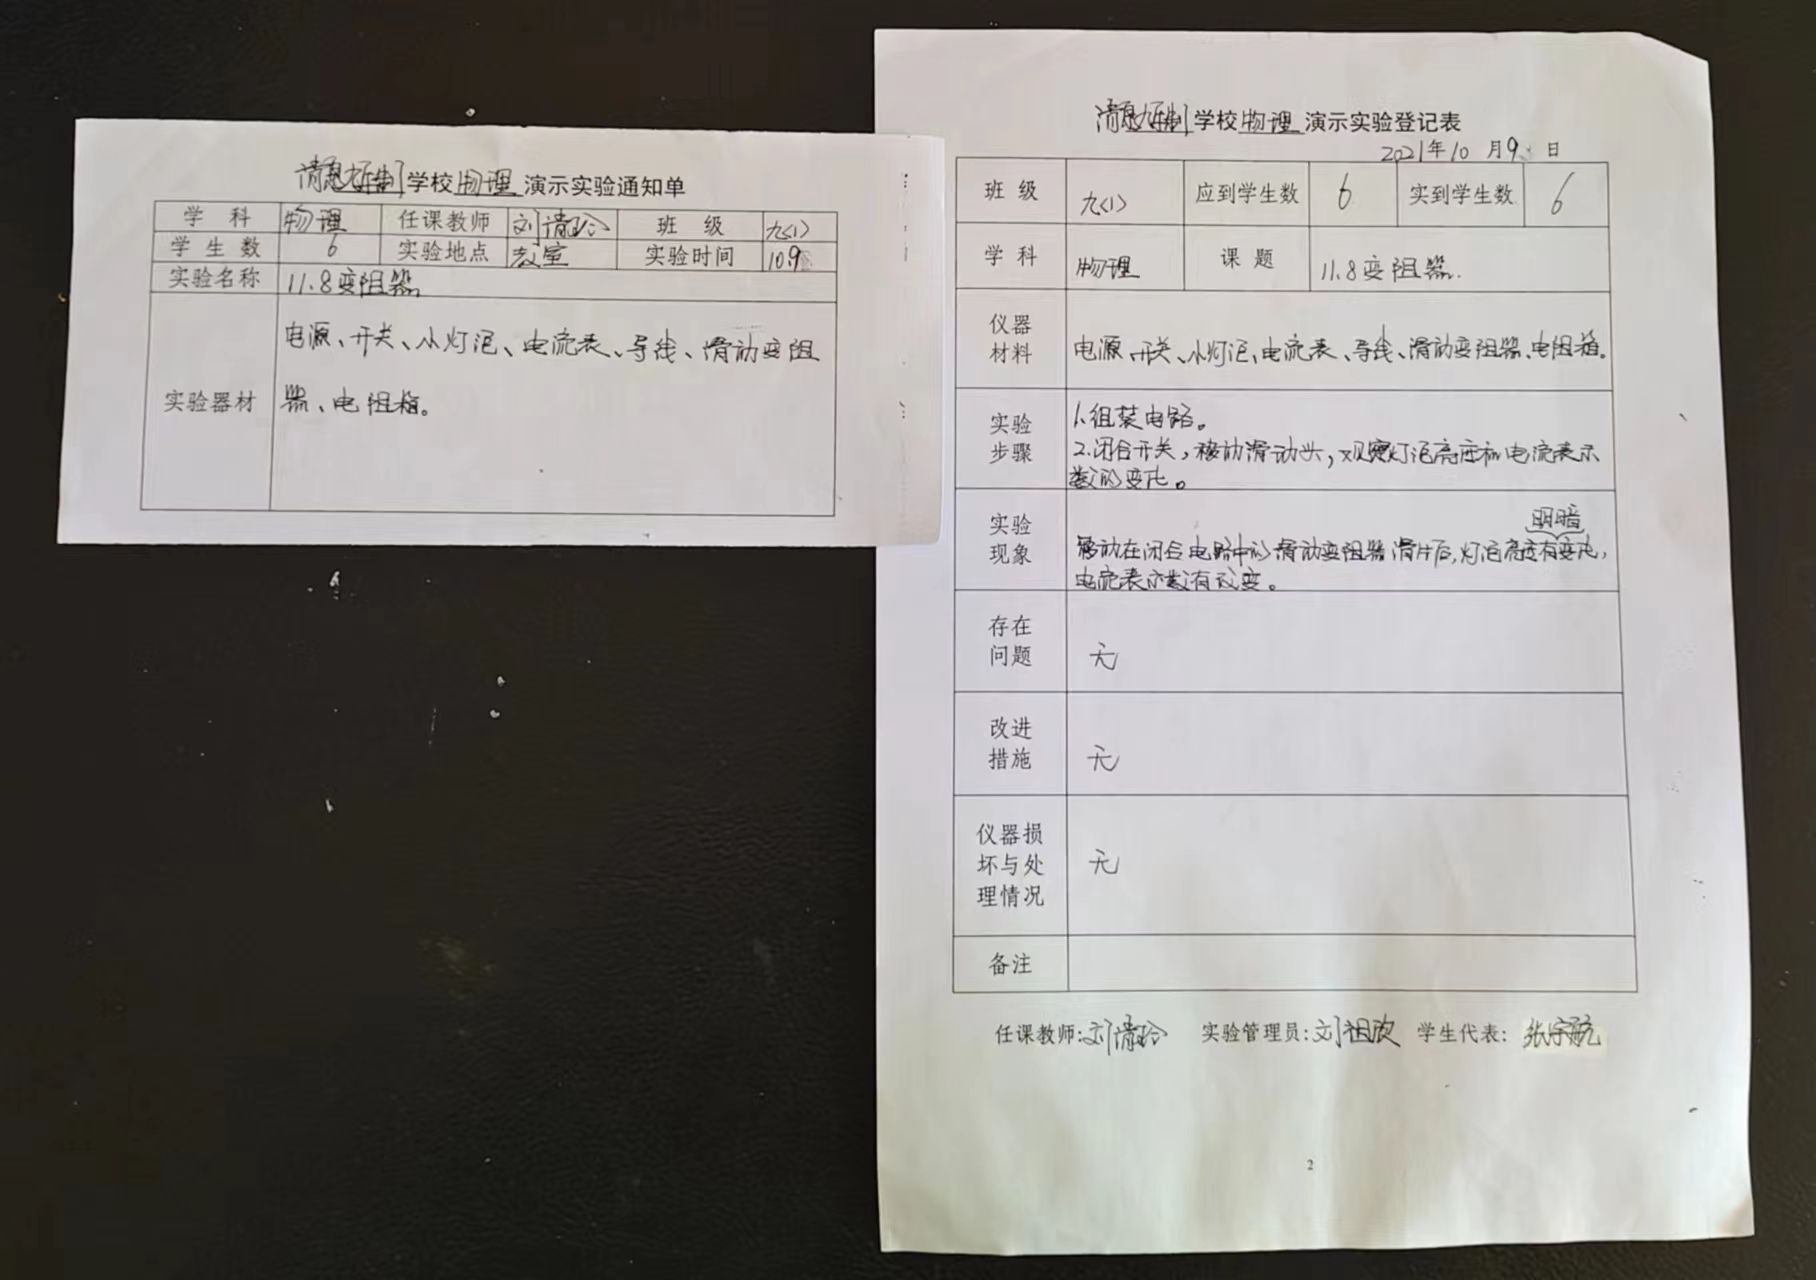 清恩九年制学校物理演示实验通知单
学科 物理 任课教师 刘清玲 班级 九(1)
学生数 6 实验地点 教室 实验时间 10.9
实验名称 11.8变阻器
实验器材 电源、开关、小灯泡、电流表、导线、滑动变阻
器、电阻箱。
清恩九年制学校物理演示实验登记表
2021年10月9日
班级 九(1) 应到学生数 6 实到学生数 6
学科 物理 课题 11.8变阻器.
仪器
材料
电源、开关、小灯泡、电流表、导线、滑动变阻器、电阻箱。
实验
步骤
1.组装电路。
2.闭合开关,移动滑动头,观察灯泡亮度和电流表示
数的变化。
实验
现象
明暗
移动在闭合电路中的滑动变阻器滑片后,灯泡亮度有变化,
电流表示数有改变。
存在
问题
无
改进
措施
无
仪器损
坏与处
理情况
无
备注
任课教师:刘清玲 实验管理员:刘祖欣 学生代表:张宇航
2